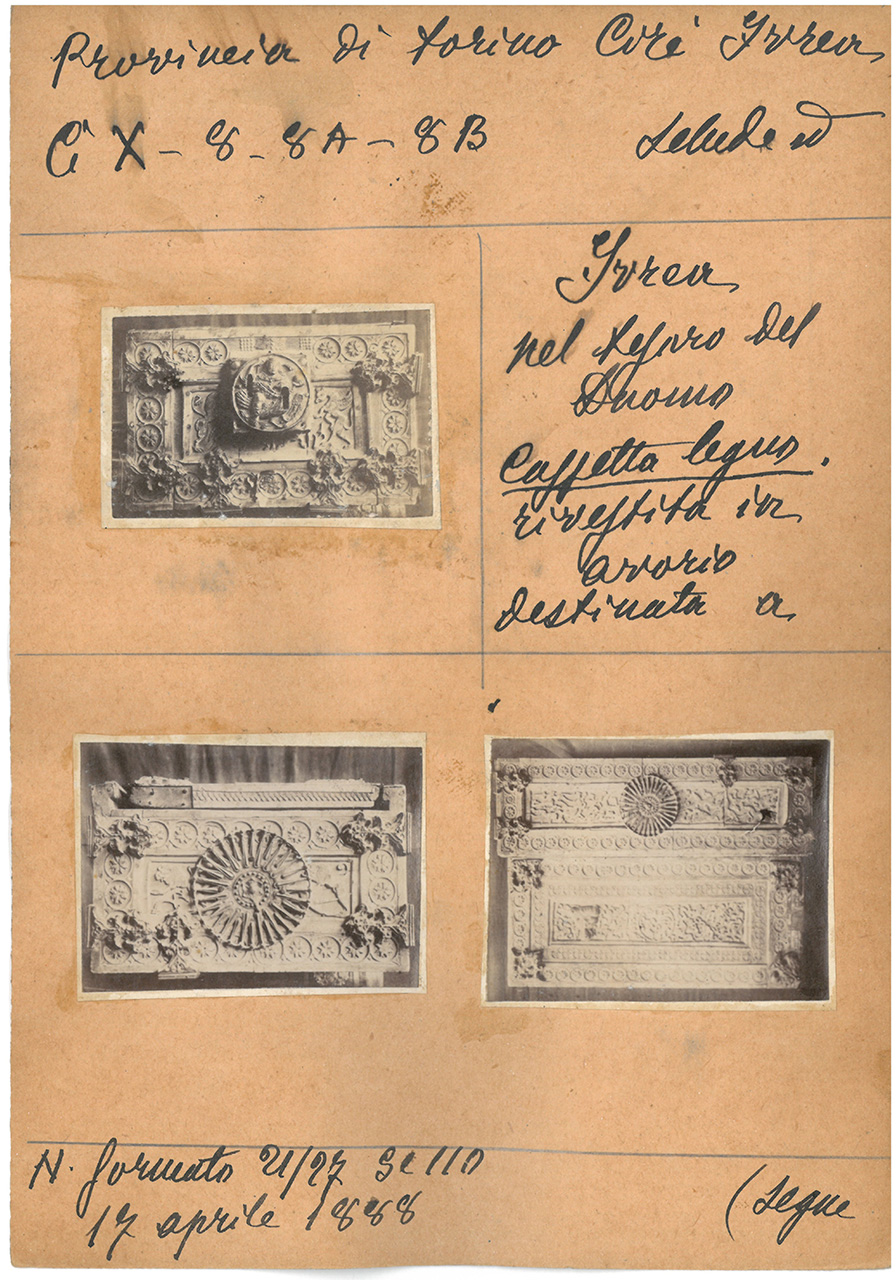 Provincia di Torino Circ Ivrea
C X - 8 - 8A - 8B
Schede
Ivrea
nel tesoro del
Duomo
Cassetta legno.
rivestita in
avorio
destinata a
N. formato 21/27
17 aprile 1888
(segue